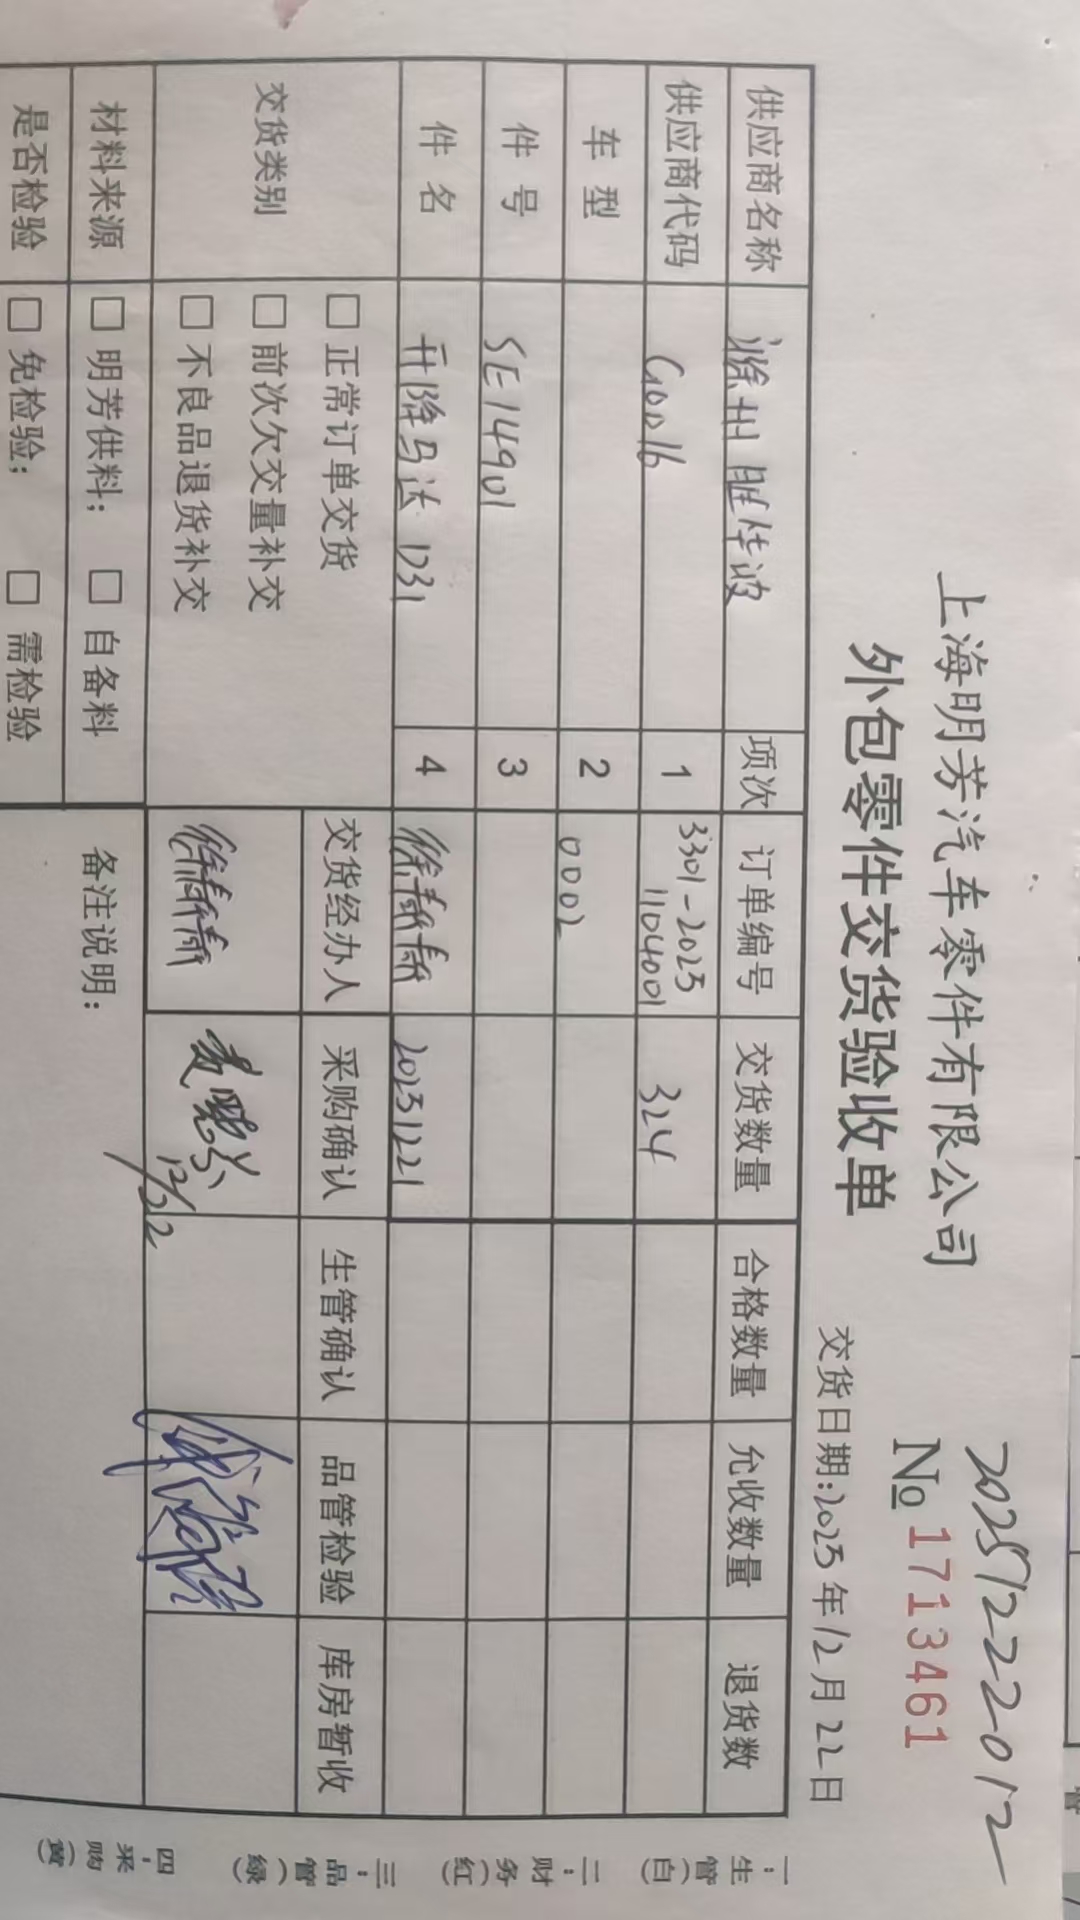 202512222012
上海明芳汽车零件有限公司
№ 1713461
外包零件交货验收单
交货日期:2025年12月22日
供应商名称 滁州胜华波 项次 订单编号 交货数量 合格数量 允收数量 退货数
供应商代码 G0016 1 3301-2025 324
1104001
车型 2 0002
件号 SE14901 3
件名 升降马达 D31 4 徐春莆 20251221
交货类别 □ 正常订单交货 交货经办人 采购确认 生管确认 品管检验 库房暂收
□ 前次欠交量补交
□ 不良品退货补交 12/22
材料来源 □ 明芳供料; □ 自备料 备注说明:
是否检验 □ 免检验; □ 需检验
一:生管(白)
二:财务(红)
三:品管(绿)
四:采购(黄)